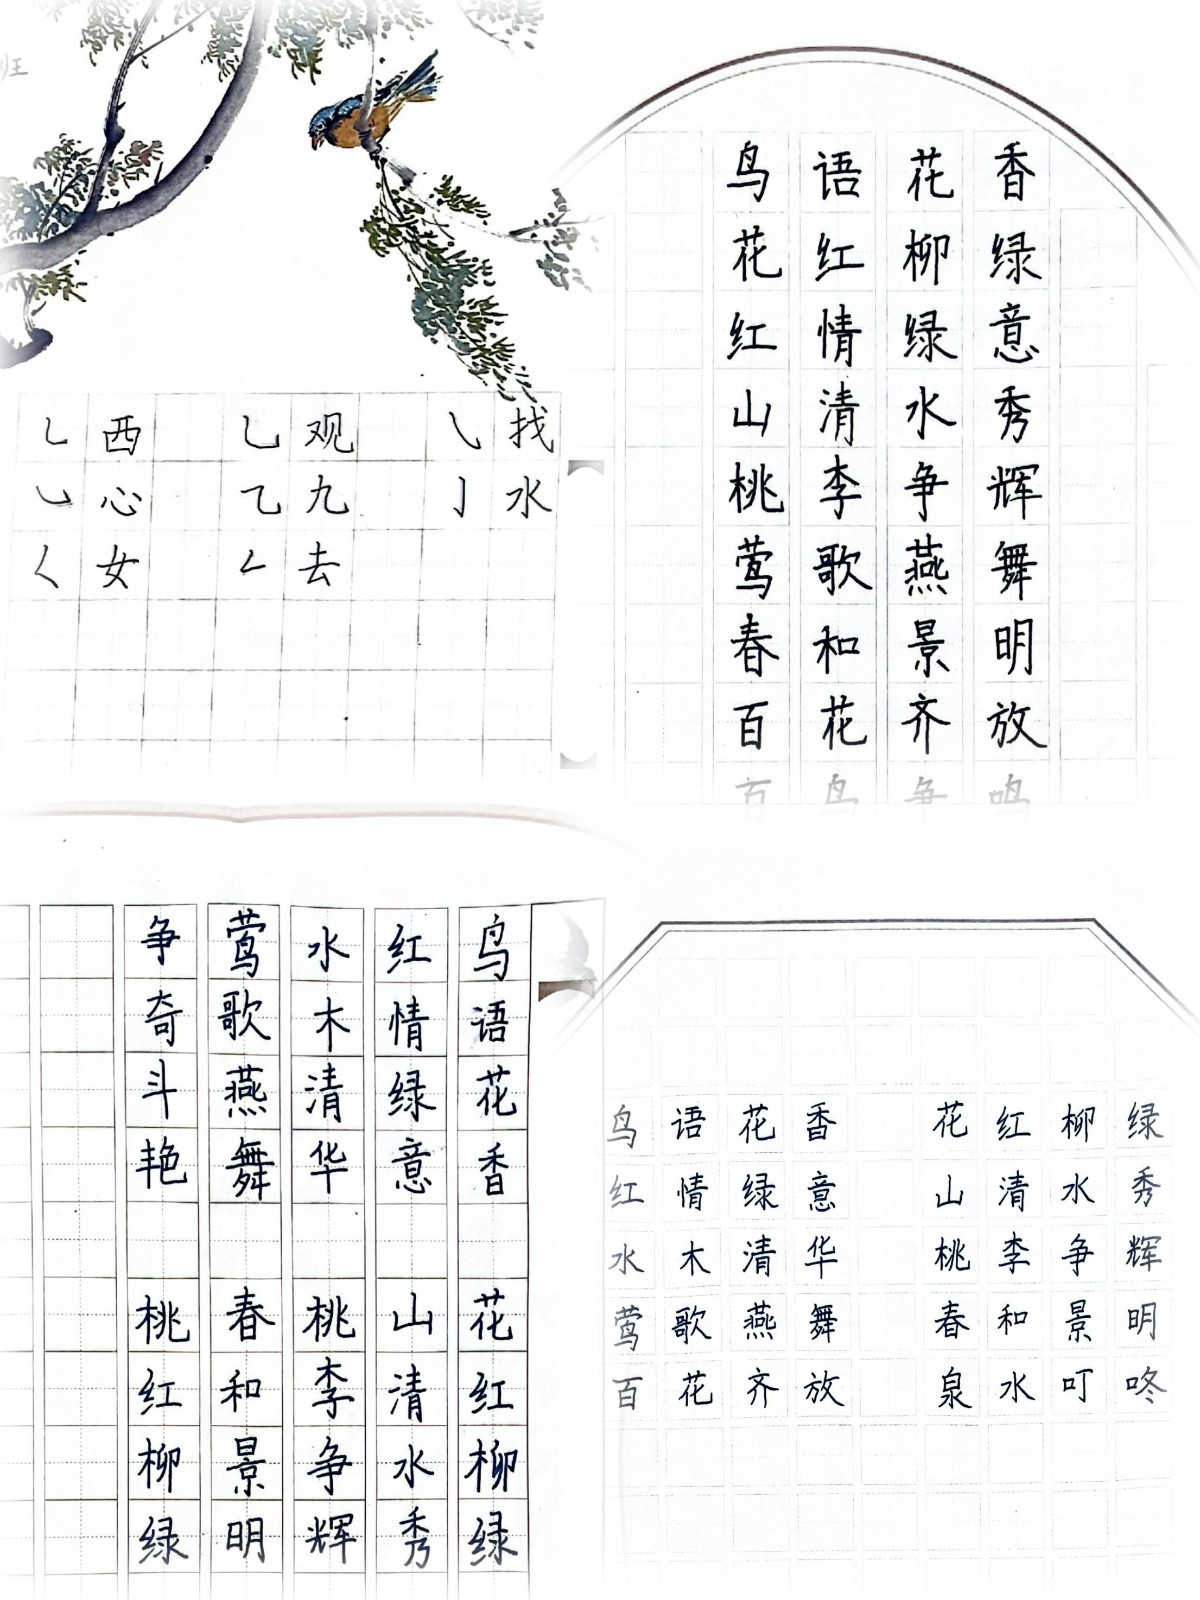 班
㇄ 西 ㇟ 观 ㇂ 找
㇃ 心 乙 九 亅 水
𡿨 女 ㇜ 去
鸟语花香
花红柳绿
红情绿意
山清水秀
桃李争辉
莺歌燕舞
春和景明
百花齐放
百鸟争鸣
鸟语花香 花红柳绿
红情绿意 山清水秀
水木清华 桃李争辉
莺歌燕舞 春和景明
争奇斗艳 桃红柳绿
鸟语花香 花红柳绿
红情绿意 山清水秀
水木清华 桃李争辉
莺歌燕舞 春和景明
百花齐放 泉水叮咚